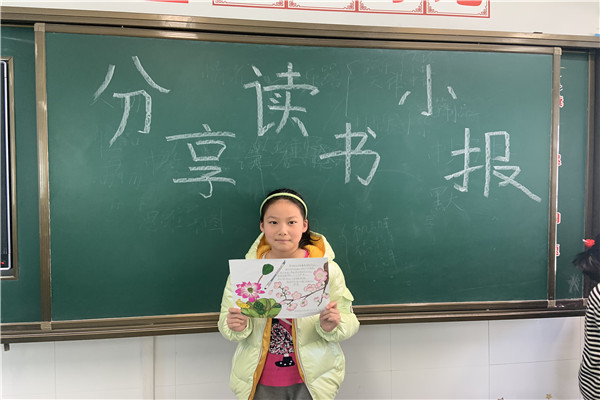 分享读书小报